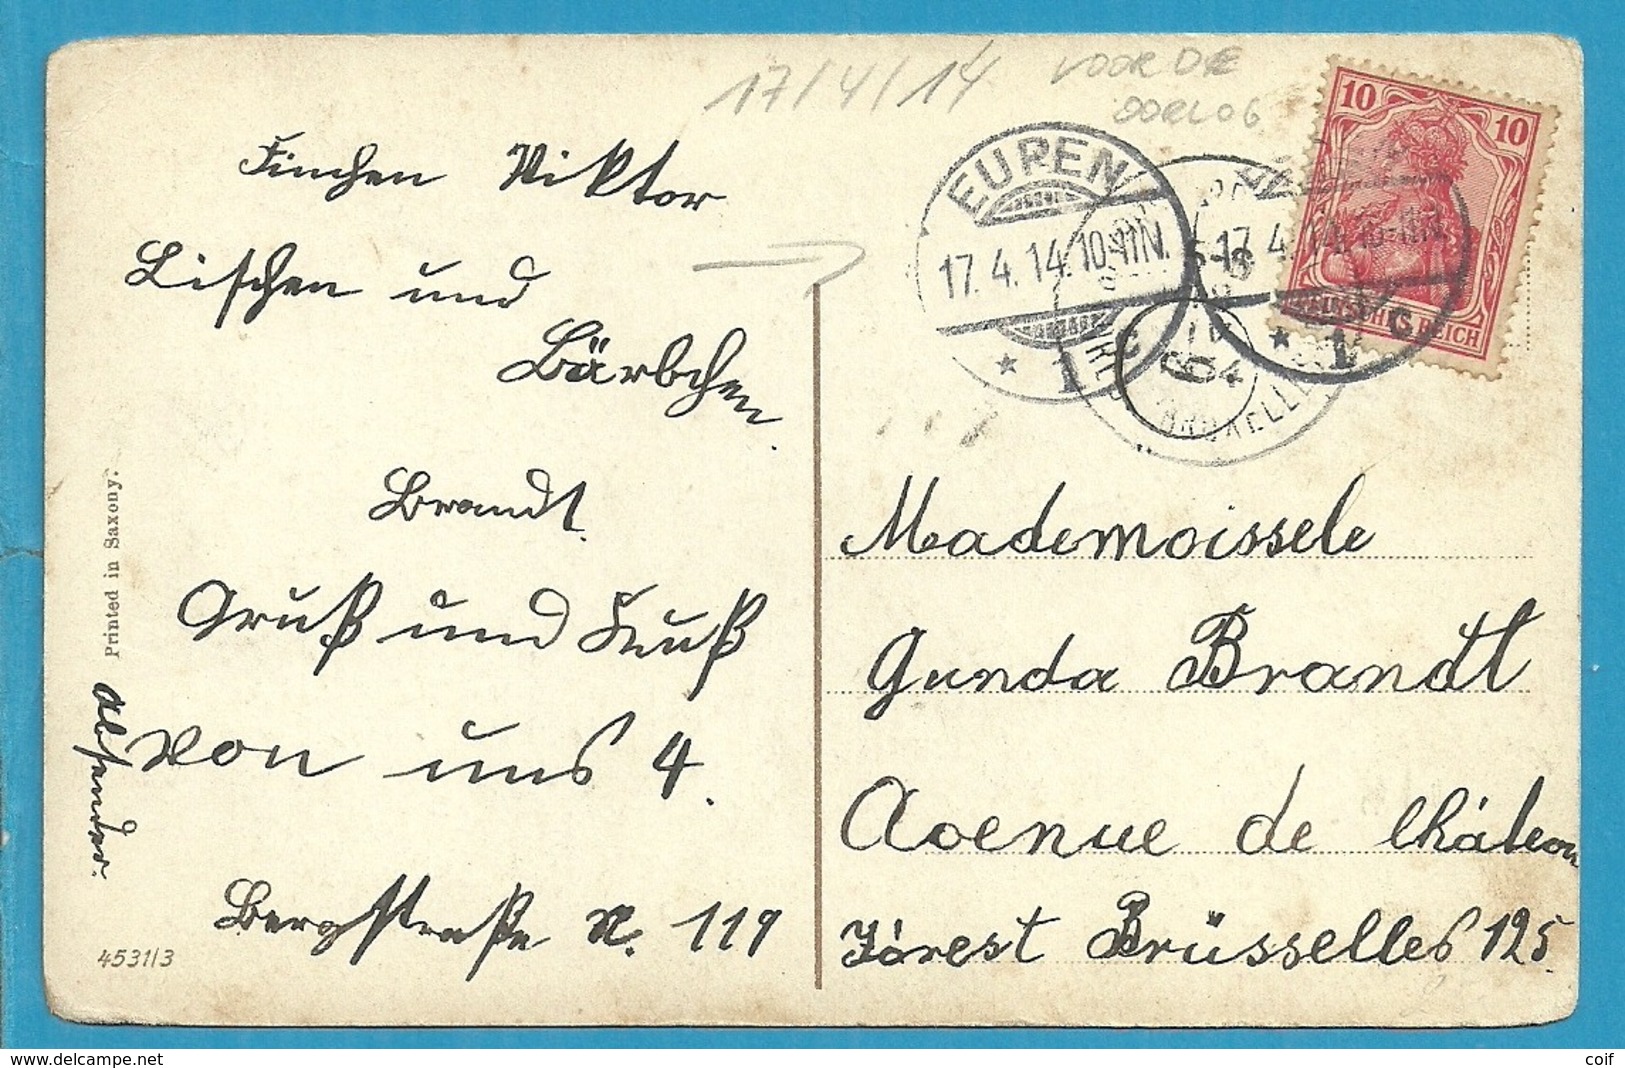 17/4/14 VOOR DE
OORLOG
10 10
DEUTSCHES REICH
EUPEN
17.4.14.10-11N.
* 1 c
17.4.14.10-11N.
* 1 c
BRUXELLES
Finchen Viktor
Lischen und
Bärbchen.
Brandt.
Gruß und Kuß
von uns 4.
Absender.
Bergstraße N. 119
Printed in Saxony.
4531/3
Mademoissele
Gunda Brandt
Avenue de Château
Fórest Brüsselles 125.
www.delcampe.net
coif